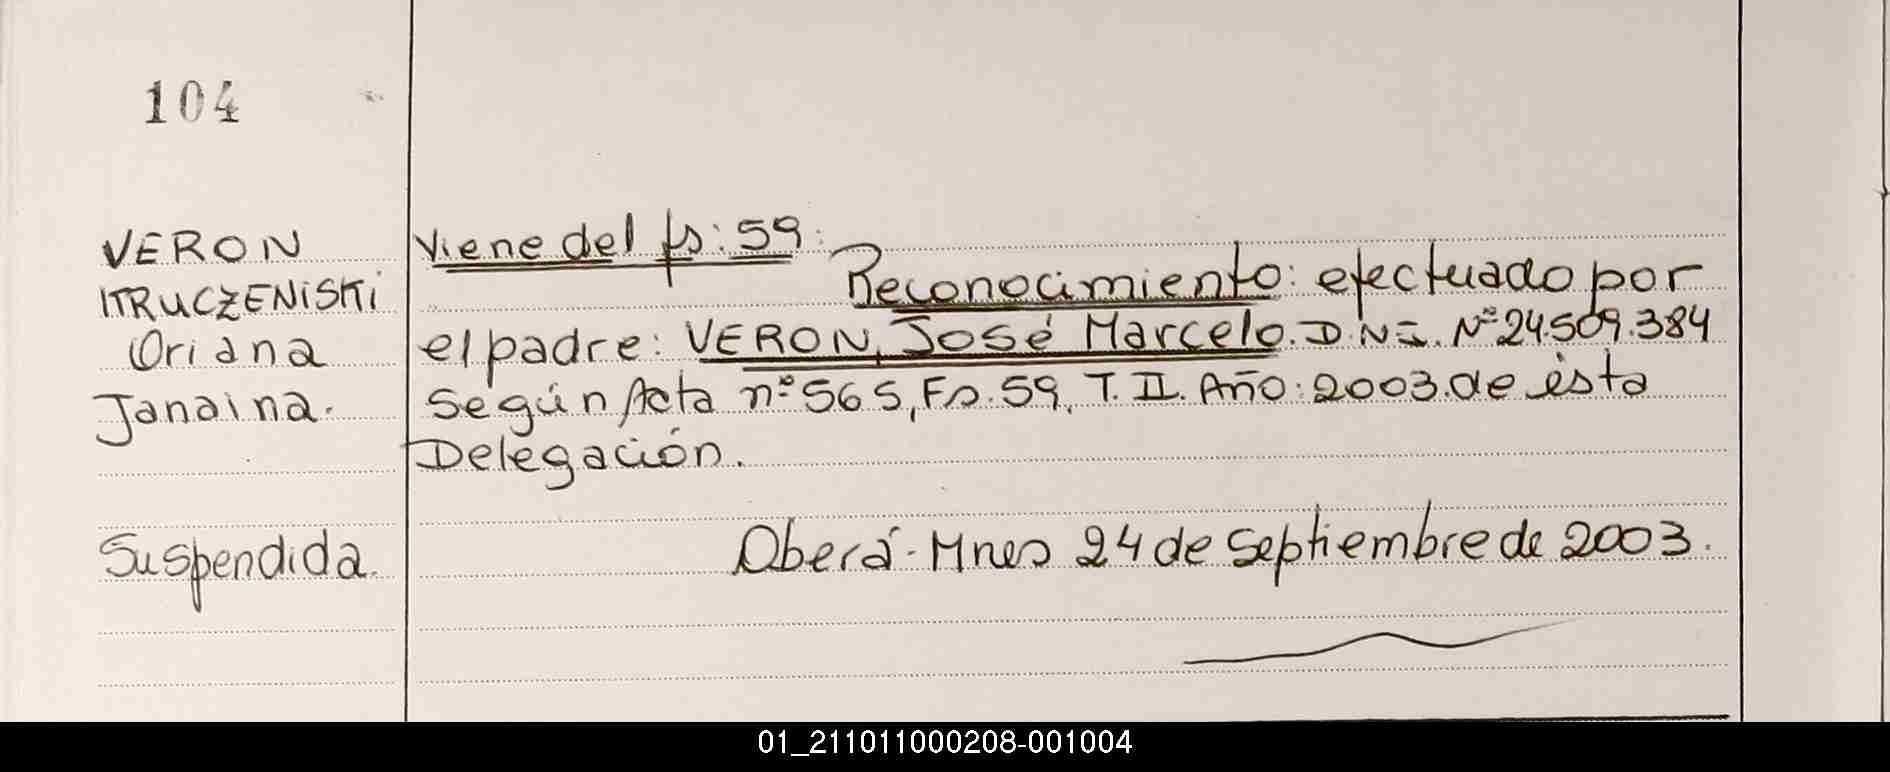 104
VERON
ITRUCZENISKI
Oriana
Janaina.
Suspendida.
Viene del fs: 59:
Reconocimiento: efectuado por
el padre: VERON, José Marcelo. D.N.I. Nº 24.509.384
según Acta nº 565, Fs. 59, T. II. Año: 2003. de ésta
Delegación.
Oberá - Mnes 24 de Septiembre de 2003.
01_211011000208-001004